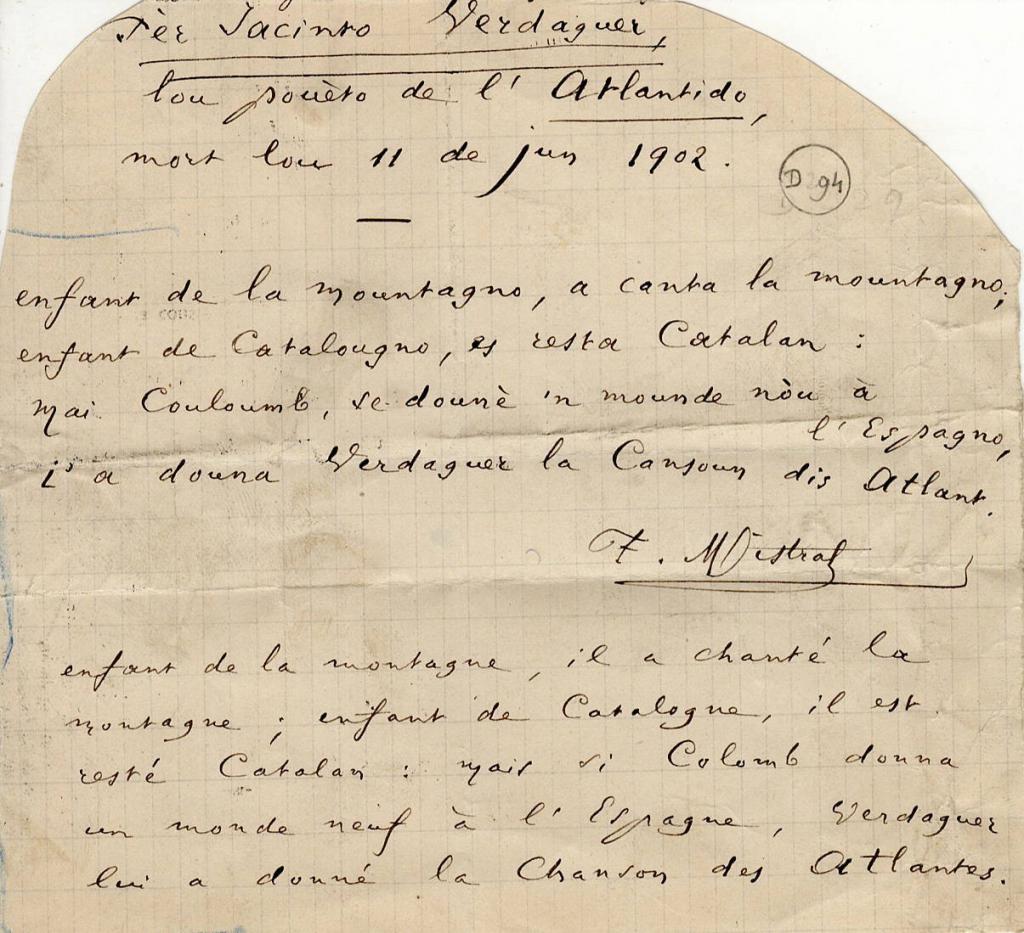 Pèr Jacinto Verdaguer,
lou pouèto de l' Atlantido,
mort lou 11 de jun 1902.
D 94
enfant de la mountagno, a canta la mountagno;
enfant de Catalougno, es resta Catalan :
mai Couloumb, se dounè 'n mounde nòu à
l' Espagno,
i' a douna Verdaguer la Cansoun dis Atlant.
F. Mistral
enfant de la montagne, il a chanté la
montagne ; enfant de Catalogne, il est
resté Catalan : mais si Colomb donna
un monde neuf à l' Espagne, Verdaguer
lui a donné la Chanson des Atlantes.